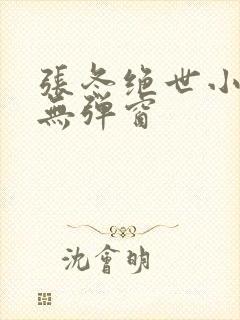 張冬绝世小
無弹窗
沈會明